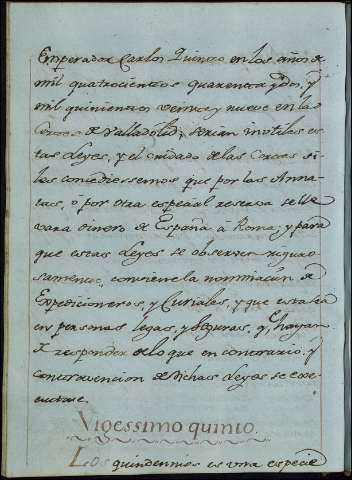 Emperador Carlos Quinto en los años de
mil quatrocientos quarenta y dos, y
mil quinientos veinte y nueve en las
Cortes de Valladolid; serian inutiles es-
tas Leyes, y el cuidado de las Cortes si
les concediessemos que por las Anna-
tas, ó por otra especial reserva se lle-
vara dinero de España à Roma; y para
que estas Leyes se observen riguro-
samente, conviene la nominacion de
Expedicioneros, y Curiales, y que esta sea
en personas legas, y seguras, q.e hayan
de responder de lo que en contrario, y
contravencion de dichas Leyes se exe-
cutare.
Vigessimo quinto.
Los quindennios es una especie